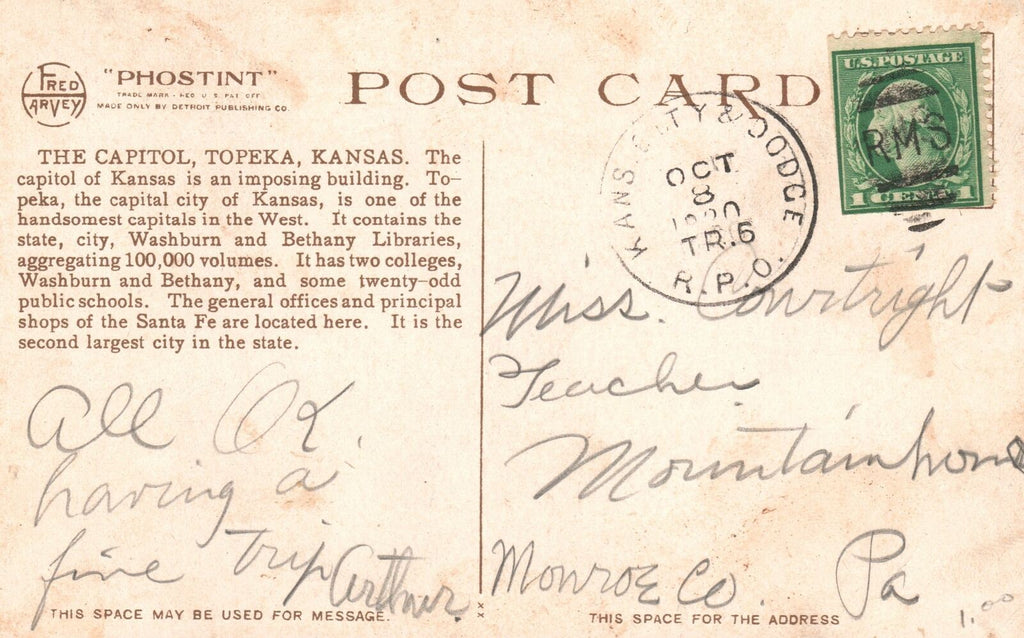 FRED HARVEY
"PHOSTINT"
TRADE MARK - REG. U. S. PAT. OFF.
MADE ONLY BY DETROIT PUBLISHING CO.
POST CARD
U.S. POSTAGE
1 CENT 1
RMS
KANS. CITY & DODGE
OCT
8
1920
TR.6
R.P.O.
THE CAPITOL, TOPEKA, KANSAS. The
capitol of Kansas is an imposing building. To-
peka, the capital city of Kansas, is one of the
handsomest capitals in the West. It contains the
state, city, Washburn and Bethany Libraries,
aggregating 100,000 volumes. It has two colleges,
Washburn and Bethany, and some twenty-odd
public schools. The general offices and principal
shops of the Santa Fe are located here. It is the
second largest city in the state.
All OK.
having a
fine trip Arthur.
THIS SPACE MAY BE USED FOR MESSAGE.
xx
Miss. Courtright
Teacher
Mountainhome
Monroe Co. Pa
THIS SPACE FOR THE ADDRESS
1.00